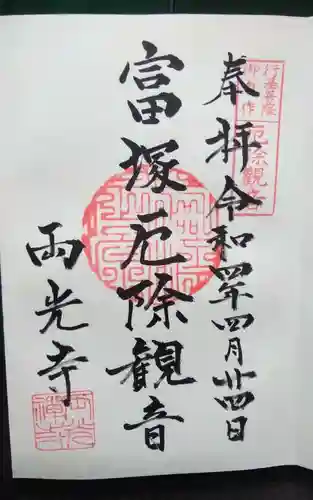 奉拝 令和四年四月廿四日
行基菩薩
御自作
厄除観音
富塚厄除観音
両光寺